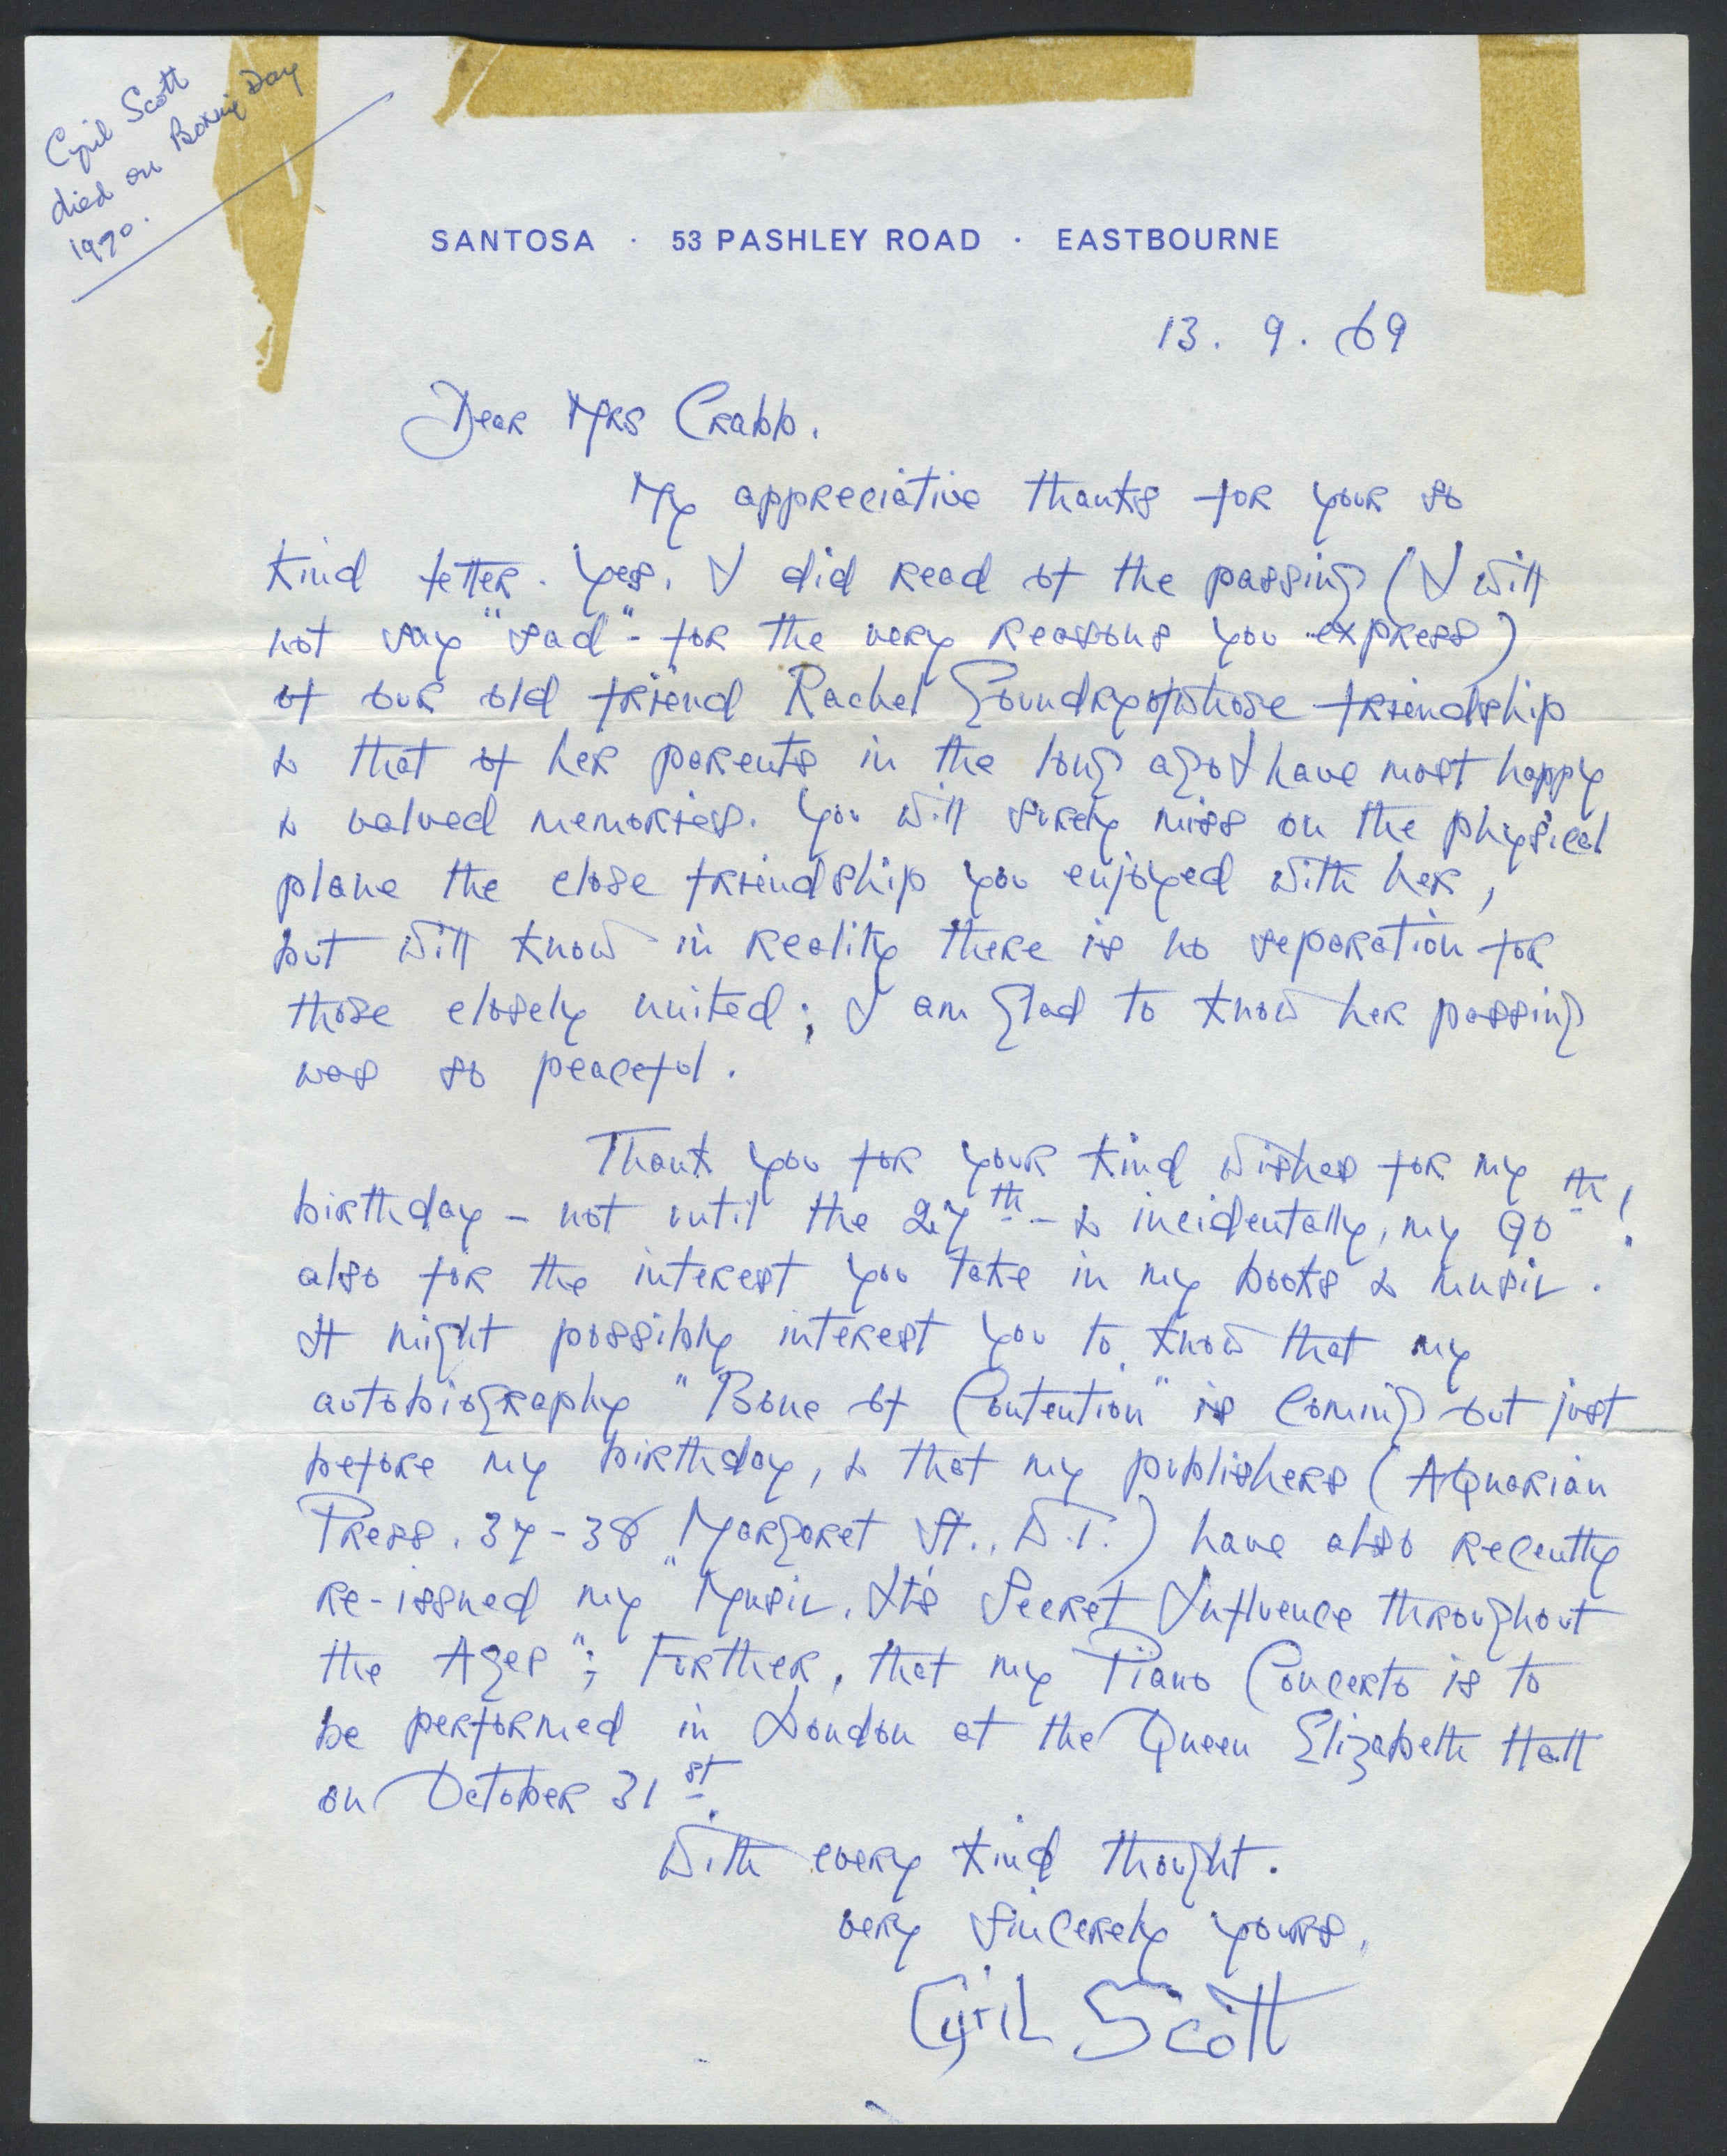 Cyril Scott
died on Boxing Day
1970.
SANTOSA · 53 PASHLEY ROAD · EASTBOURNE
13. 9. 69
Dear Mrs Crabb.
My appreciative thanks for your so
kind letter. Yes, I did read of the passing (I will
not say "sad" - for the very reasons you express)
of our old friend Rachel of whose friendship
& that of her parents in the long ago I have most happy
& valued memories. You will surely miss on the physical
plane the close friendship you enjoyed with her,
but will know in reality there is no separation for
those closely united; I am glad to know her passing
was so peaceful.
Thank you for your kind wishes for my
birthday - not until the 27th - & incidentally, my 90th!
also for the interest you take in my books & music.
It might possibly interest you to know that my
autobiography "Bone of Contention" is coming out just
before my birthday, & that my publishers (Aquarian
Press. 37-38 Margaret St., W.1.) have also recently
re-issued my "Music, Its Secret Influence throughout
the Ages"; Further, that my Piano Concerto is to
be performed in London at the Queen Elizabeth Hall
on October 31st.
With every kind thought.
very sincerely yours,
Cyril Scott